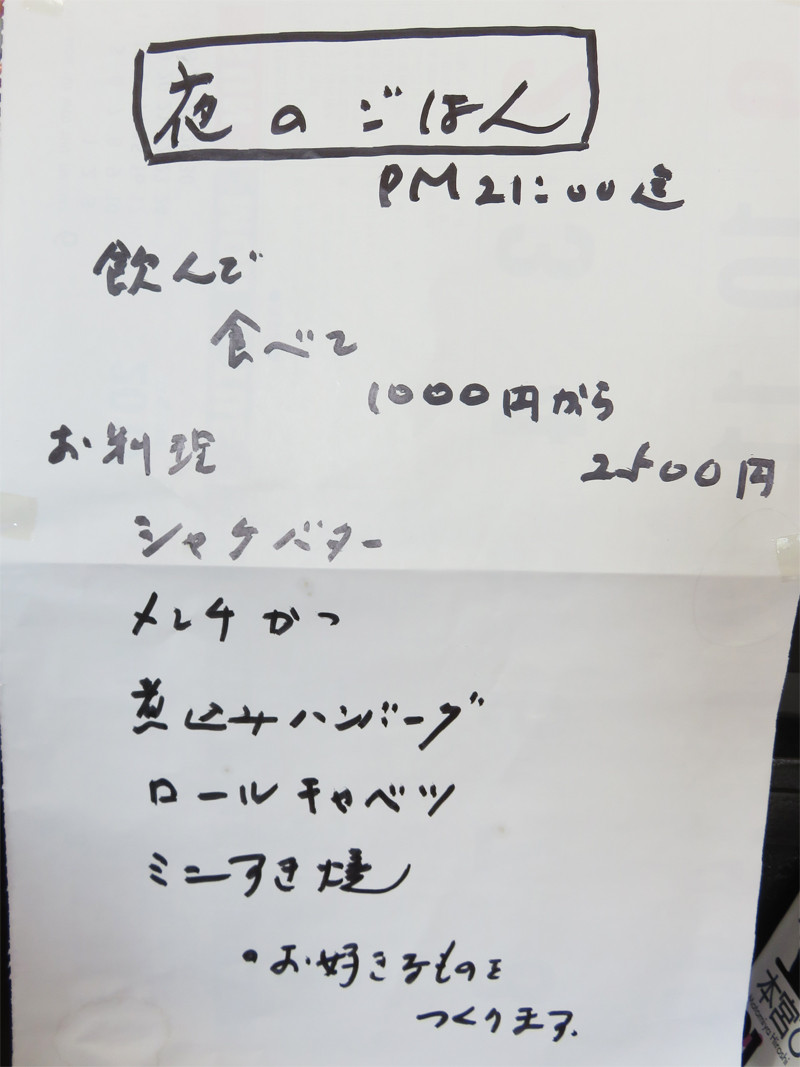 夜のごはん
PM 21:00迄
飲んで
食べて
1000円から
2500円
お料理
シャケバター
メンチかつ
煮込みハンバーグ
ロールキャベツ
ミニすき焼
・お好きなものを
つくります.
本宮
Motomiya Hiroshi